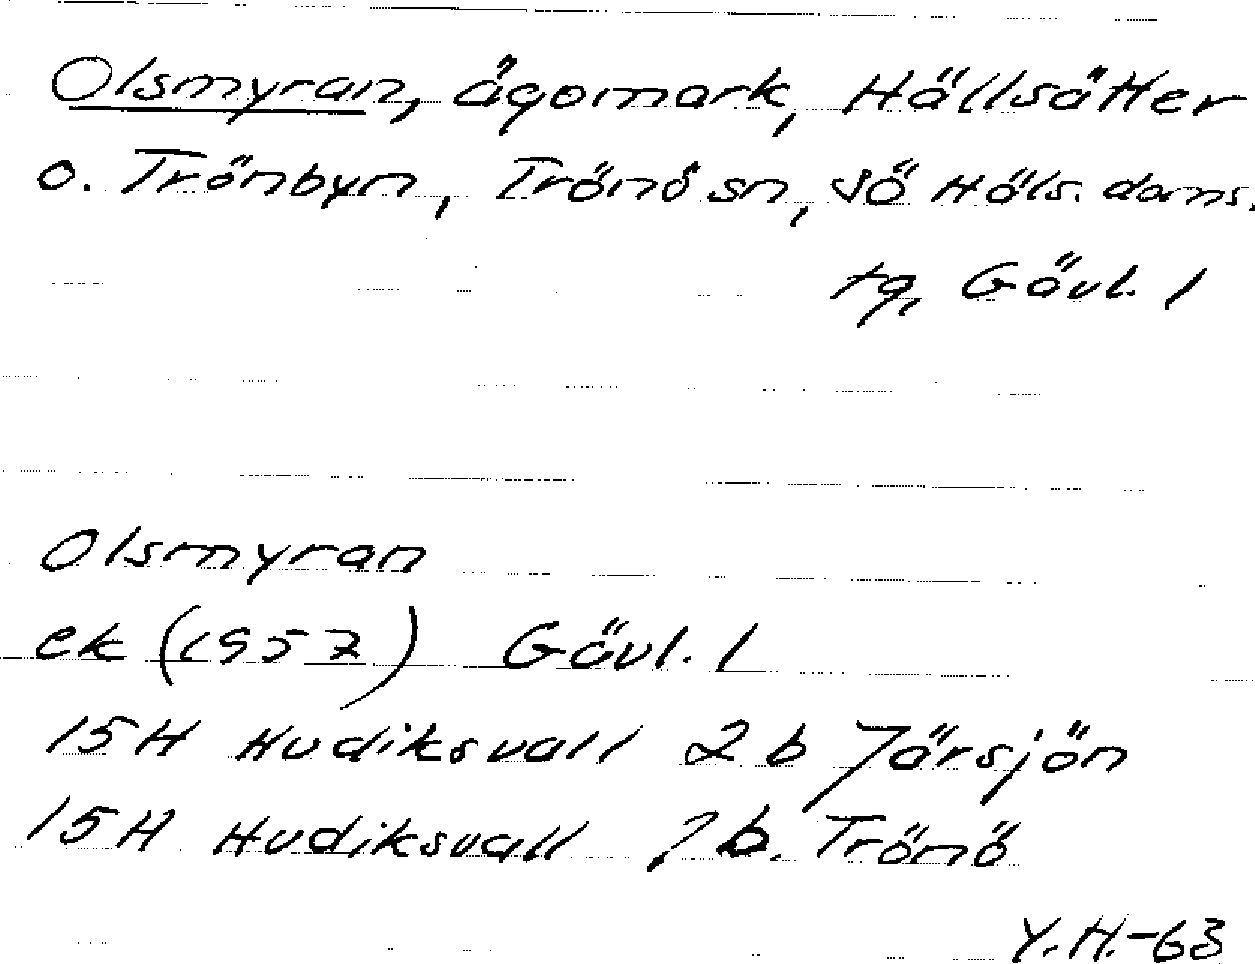 Olsmyran, ägomark, Hällsätter
o. Trönbyn, Trönö sn, Sö Häls. doms.
tg, Gävl. l
Olsmyran
ek (1957) Gävl. l
15H Hudiksvall 2 b Järsjön
15H Hudiksvall b. Trönö
Y.H.-63